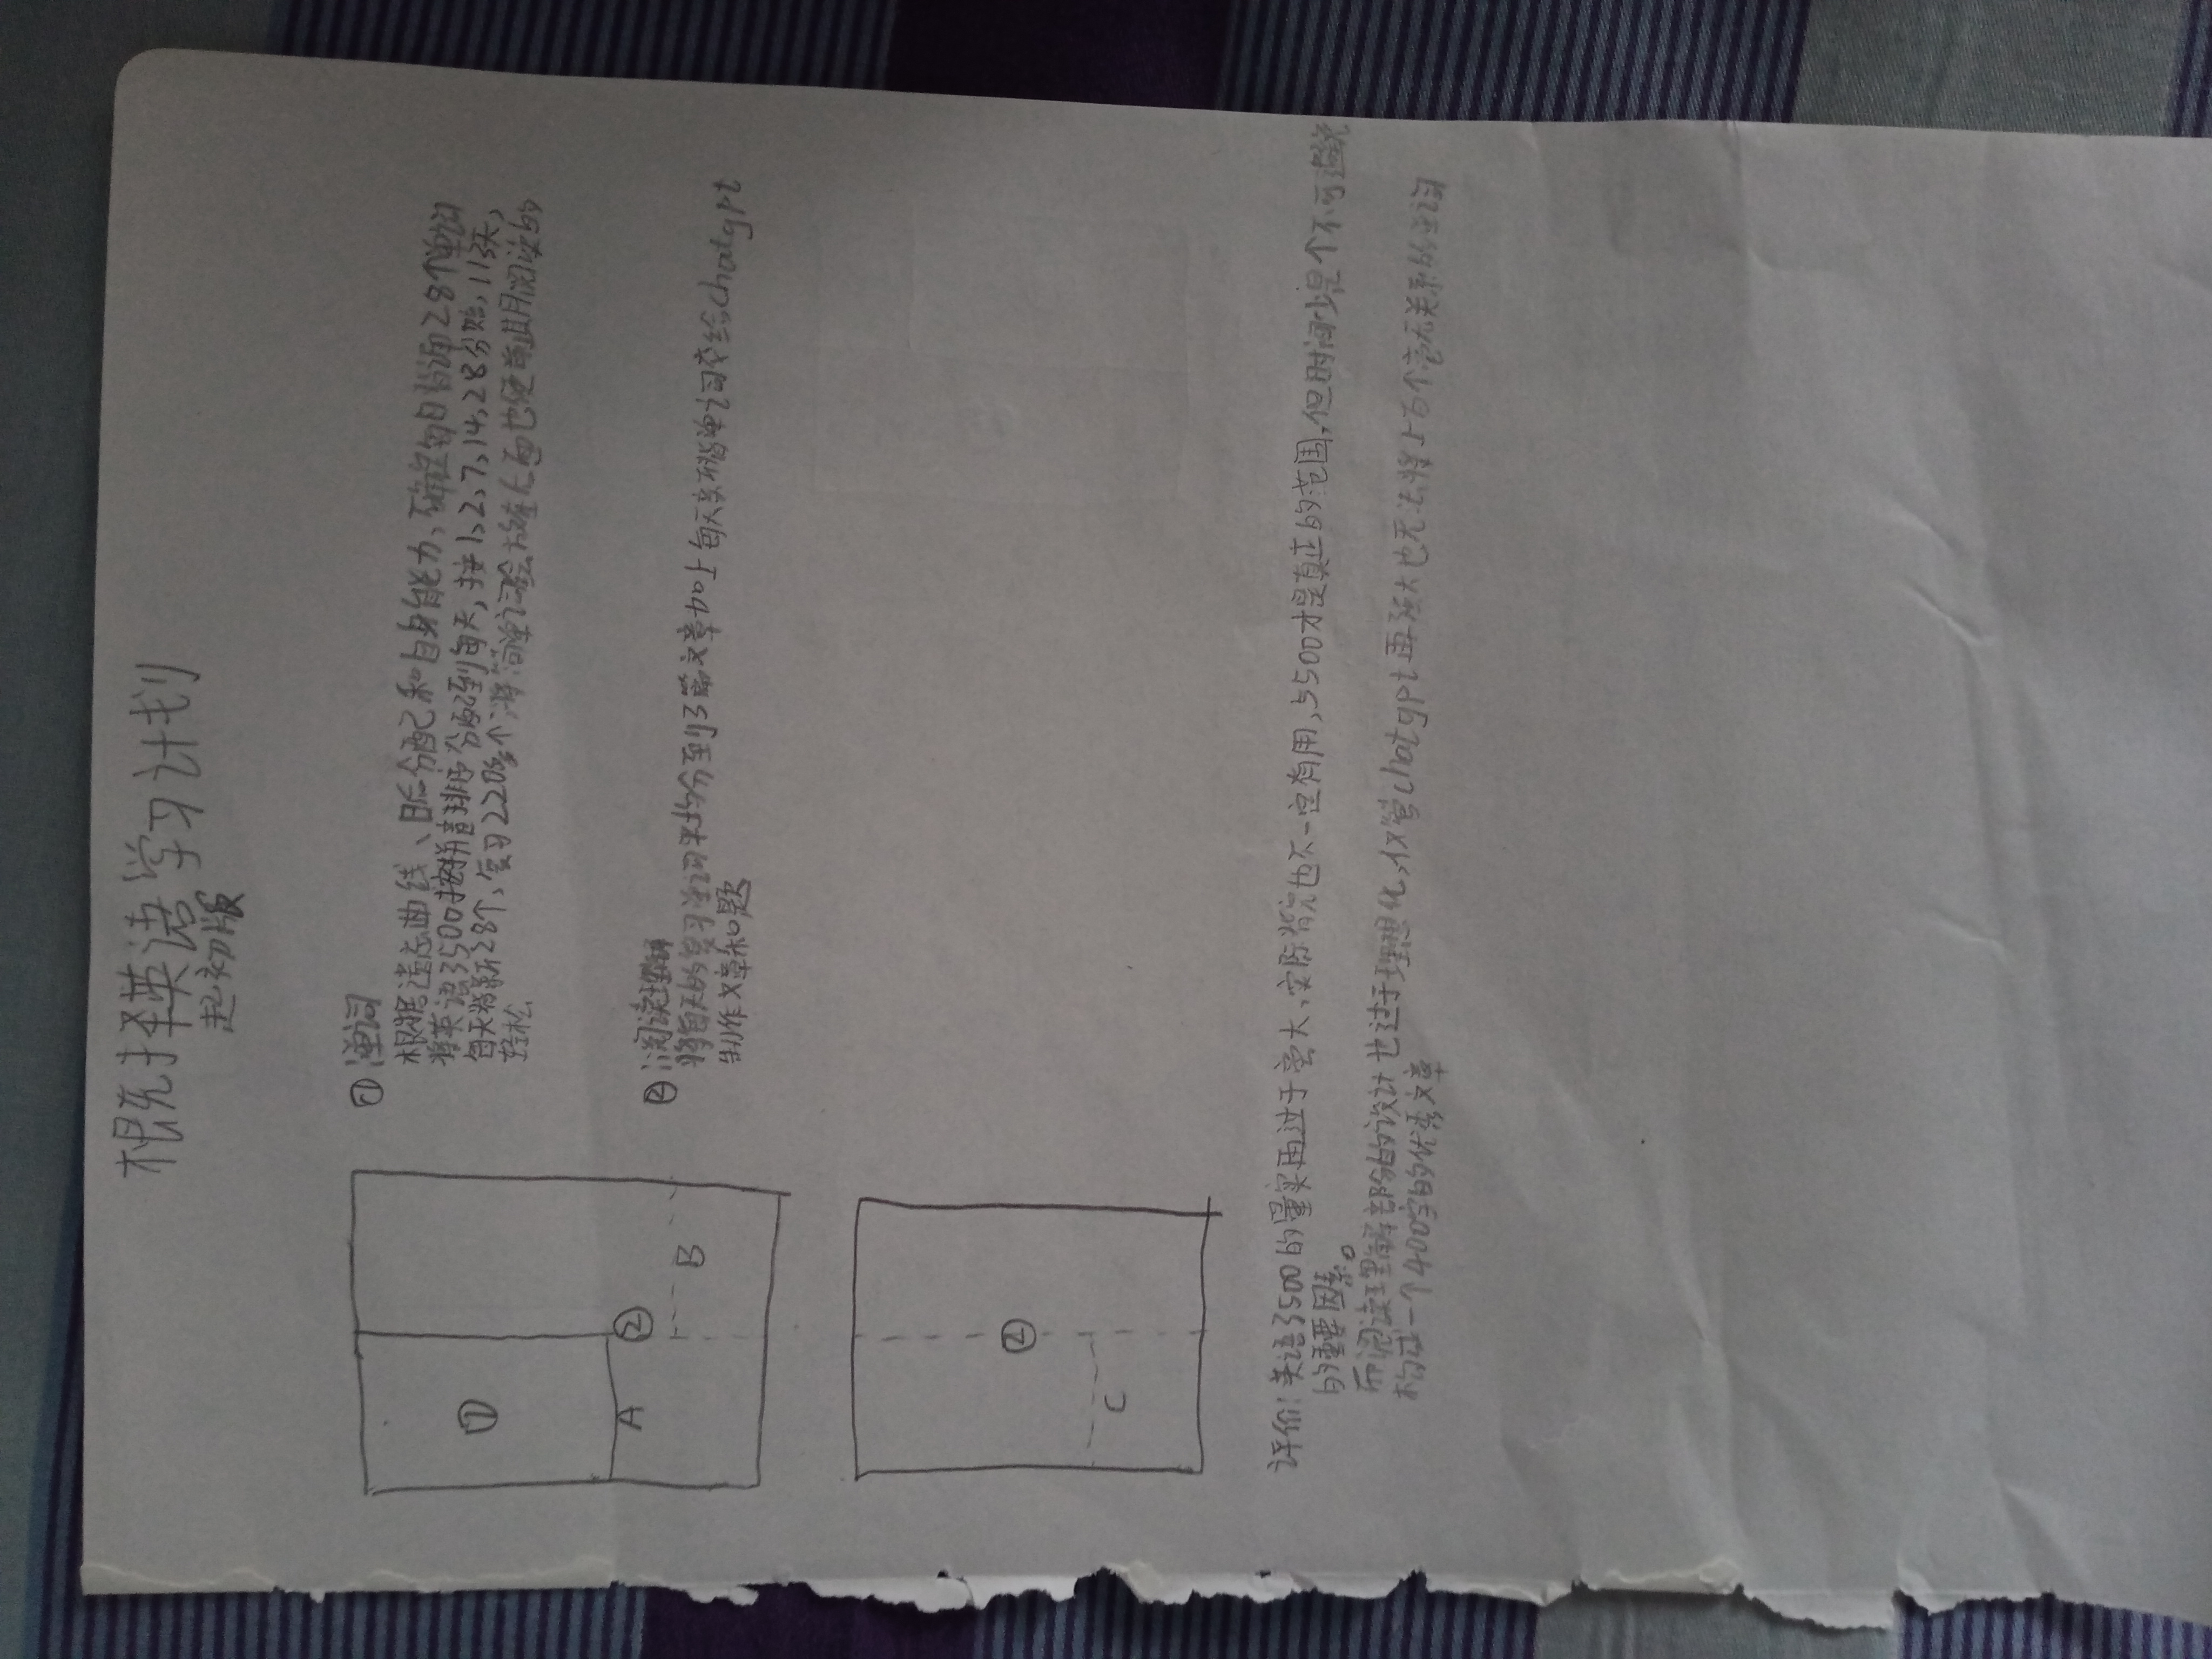 英语学习计划
起初版
① 单词
根据遗忘曲线、日后分配和自身能力,确定每日背诵28个单词
将英语3500按拼音排序分配到每天,按1,2,7,14,28分贻,113天,
每天背新28个,复习220多个,将简单词会放在后面也便前期阅读的
轻松
①
A
②
B
② 阅读理解
将每天的复习单词平均分到3篇文章加上每天新背单词交给chatgpt
制作文章和题
②
C
评价:英语3500的量实再过于庞大,实际背完也不一定有用,5500才是真正的范围,但时间少是个不可避免
的重要因素。
而阅读理解部分的设计也过于理想化,仅管chatgpt再强大也无法将上百个毫无关系的单词
构成一个400字的优秀文章